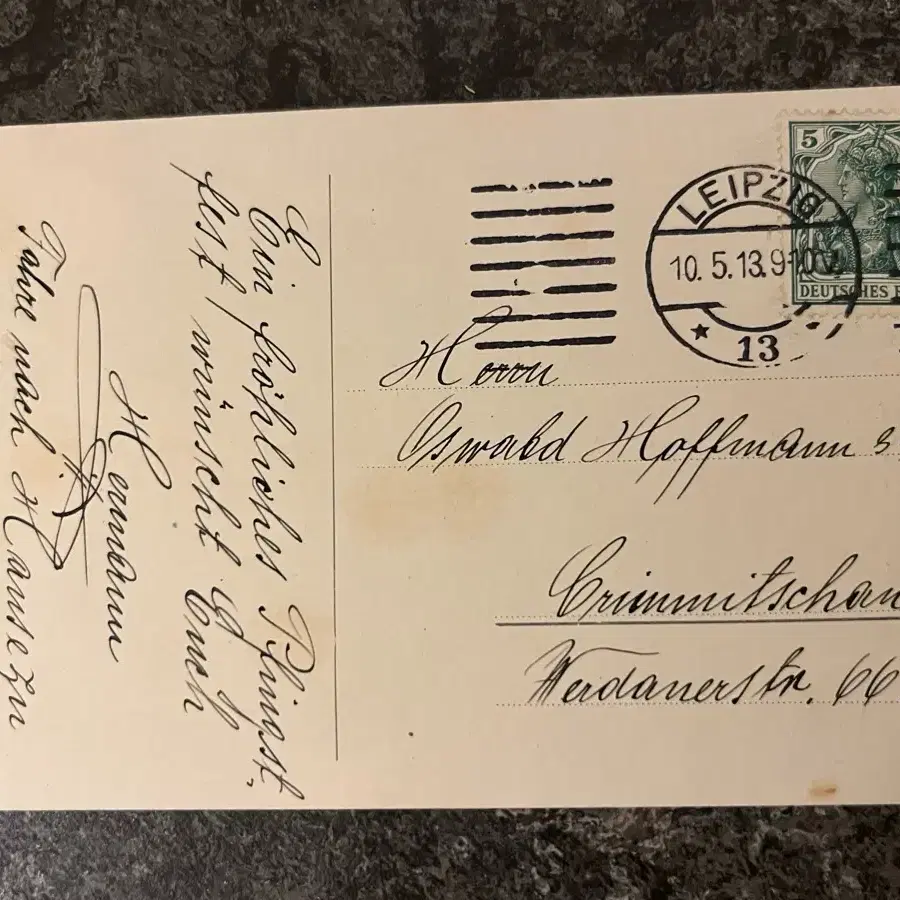 Ein fröhliches Pfingst-
fest wünscht Euch
Hermann
Fahre nach Hause zu
LEIPZIG
10.5.13.9-10V.
* 13
5
DEUTSCHES
Herrn
Oswald Hoffmann
Crimmitschau
Werdauerstr. 66